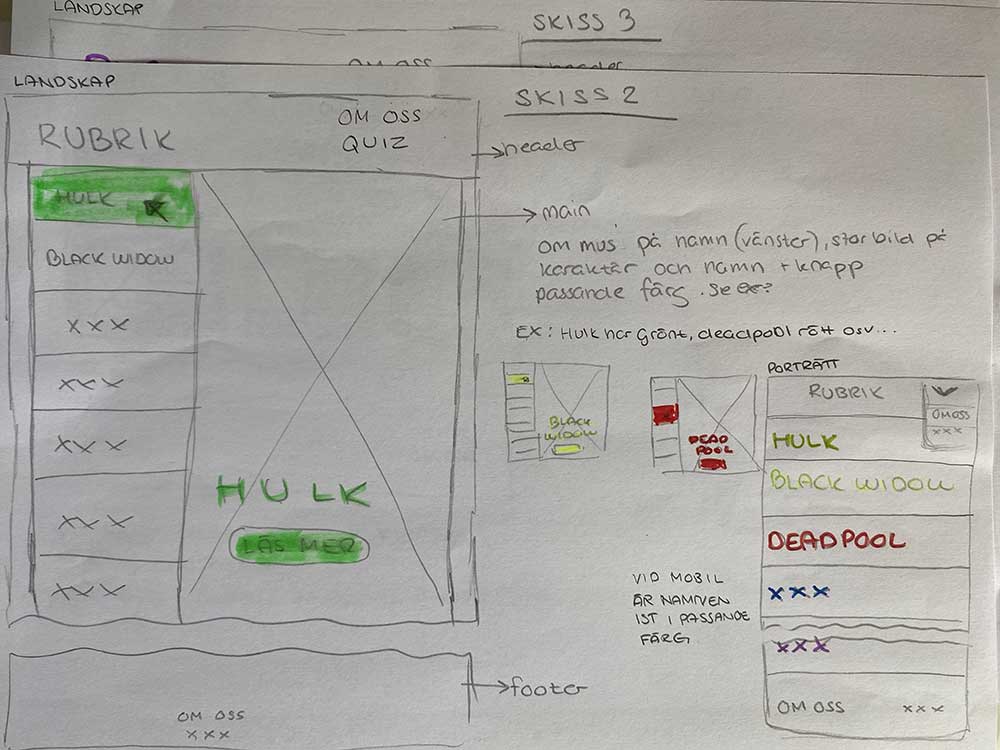 LANDSKAP
SKISS 3
header
LANDSKAP
SKISS 2
RUBRIK
OM OSS
QUIZ
header
HULK
BLACK WIDOW
XXX
XXX
XXX
XXX
XXX
HULK
LÄS MER
main
Om mus på namn (vänster), stor bild på
karaktär och namn + knapp
passande färg. Se ex?
EX: Hulk har grönt, deadpool rött osv...
BLACK
WIDOW
DEAD
POOL
PORTRÄTT
RUBRIK
OM OSS
XXX
HULK
BLACK WIDOW
DEADPOOL
XXX
XXX
OM OSS XXX
VID MOBIL
ÄR NAMNEN
IST I PASSANDE
FÄRG
footer
OM OSS
XXX